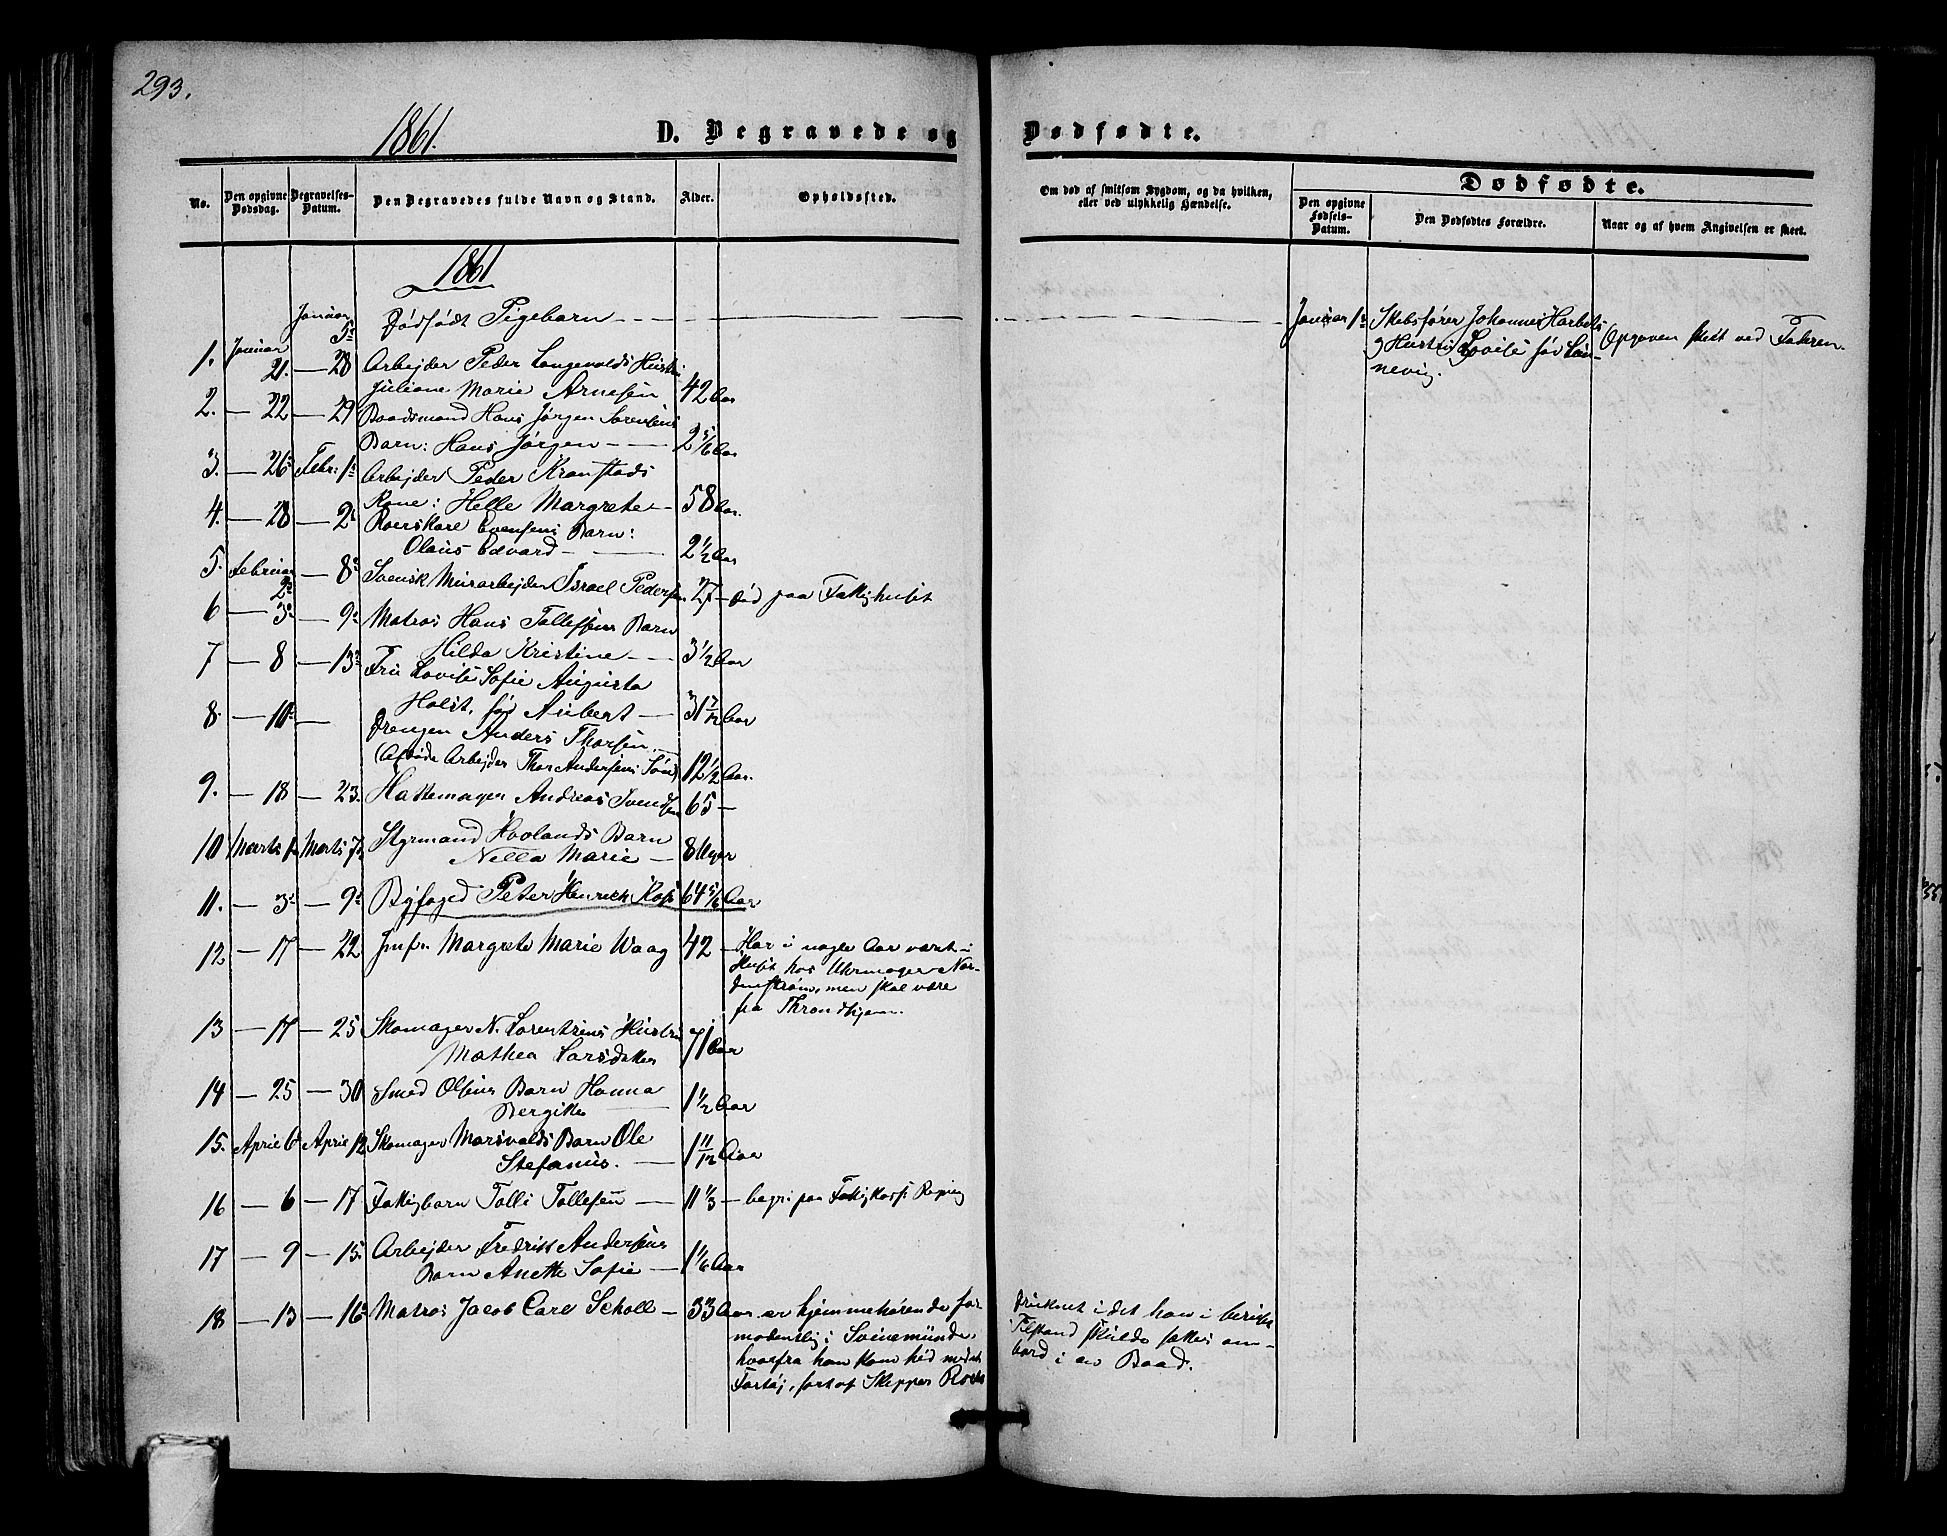 293.
1861.
D. Begravede og
Dødfødte.
No.
Den opgivne Dødsdag.
Begravelses-Datum.
Den Begravedes fulde Navn og Stand.
Alder.
Opholdssted.
Om død af smitsom Sygdom, og da hvilken,
eller ved ulykkelig Hændelse.
Dødfødte.
Den opgivne Fødsels-Datum.
Den Dødfødtes Forældre.
Naar og af hvem Angivelsen er skeet.
1861
Januar 5te Dødfødt Pigebarn
Januar 1ste Skibsfører Johannes
g Hustru Lovise før
nevig.
Opgaven skeet ved Faderen.
1. Januar 21. — 28 Arbejder Peder Langevolds Hustru
Juliane Marie Arnesen 42 Aar
2. — 22 — 29 Baadsmand Hans Jørgen Sørensens
Barn: Hans Jørgen 2 5/6 Aar
3. — 26 Febr: 1ste Arbejder Peder Kranstads
Kone: Helle Margrete 58 Aar.
4. — 28 — 2 Roerskarl Evensens Barn:
Olaus Edvard 2 1/2 Aar
5. Februar 2 — 8 Svensk Murarbejder Israel Pedersen 27 — død paa Fattighuset
6 — 3 — 9 Matros Hans Tollefsens Barn
Hilda Kristine 3 1/2 Aar
7 — 8 — 13 Fru Lovise Sofie Augusta
Holst, før Aubert 31 7/12 Aar
8. — 10 — Drengen Anders Thorsen
(Afdøde Arbejder Thor Andersens Søn) 12 1/2 Aar.
9. — 18 — 23. Hattemager Andreas Svendsen 65 —
10 Marts 1 Marts 7 Styrmand Hovlands Barn
Nilla Marie — 8 Uger
11. — 3 — 9 Byfoged Peter Henrich 64 5/6 Aar
12 — 17 — 22 Jmfr. Margrete Marie Waag 42 — Har i nogle Aar været i
Huset hos Uhrmager Nor-
denstrøm, men skal være
fra Throndhjem.
13 — 17 — 25 Skomager N. Lorentzens Hustru
Mathea Larsdatter 71 Aar
14 — 25 — 30 Smed Olsens Barn Hanna
Bergitte 1 1/2 Aar
15. April 6 April 12 Skomager Morsvolds Barn Ole
Stefanus. — 1 11/12 Aar
16 — 6 — 17 Fattigbarn Tolli Tollefsen — 11 1/3 — begr: paa Fattigkass: Regning
17 — 9 — 15 Arbejder Fredrik Andersens
Barn Anette Sofie — 1 1/6 Aar
18 — 13 — 16 Matros Jacob Carl Scholl — 33 Aar. er hjemmehørende for-
modentlig i Svinemünde,
hvorfra han kom hid med et
Fartøj, ført af Skipper
Druknet i det han i beruset
Tilstand skulde sættes om-
bord i en Baad.